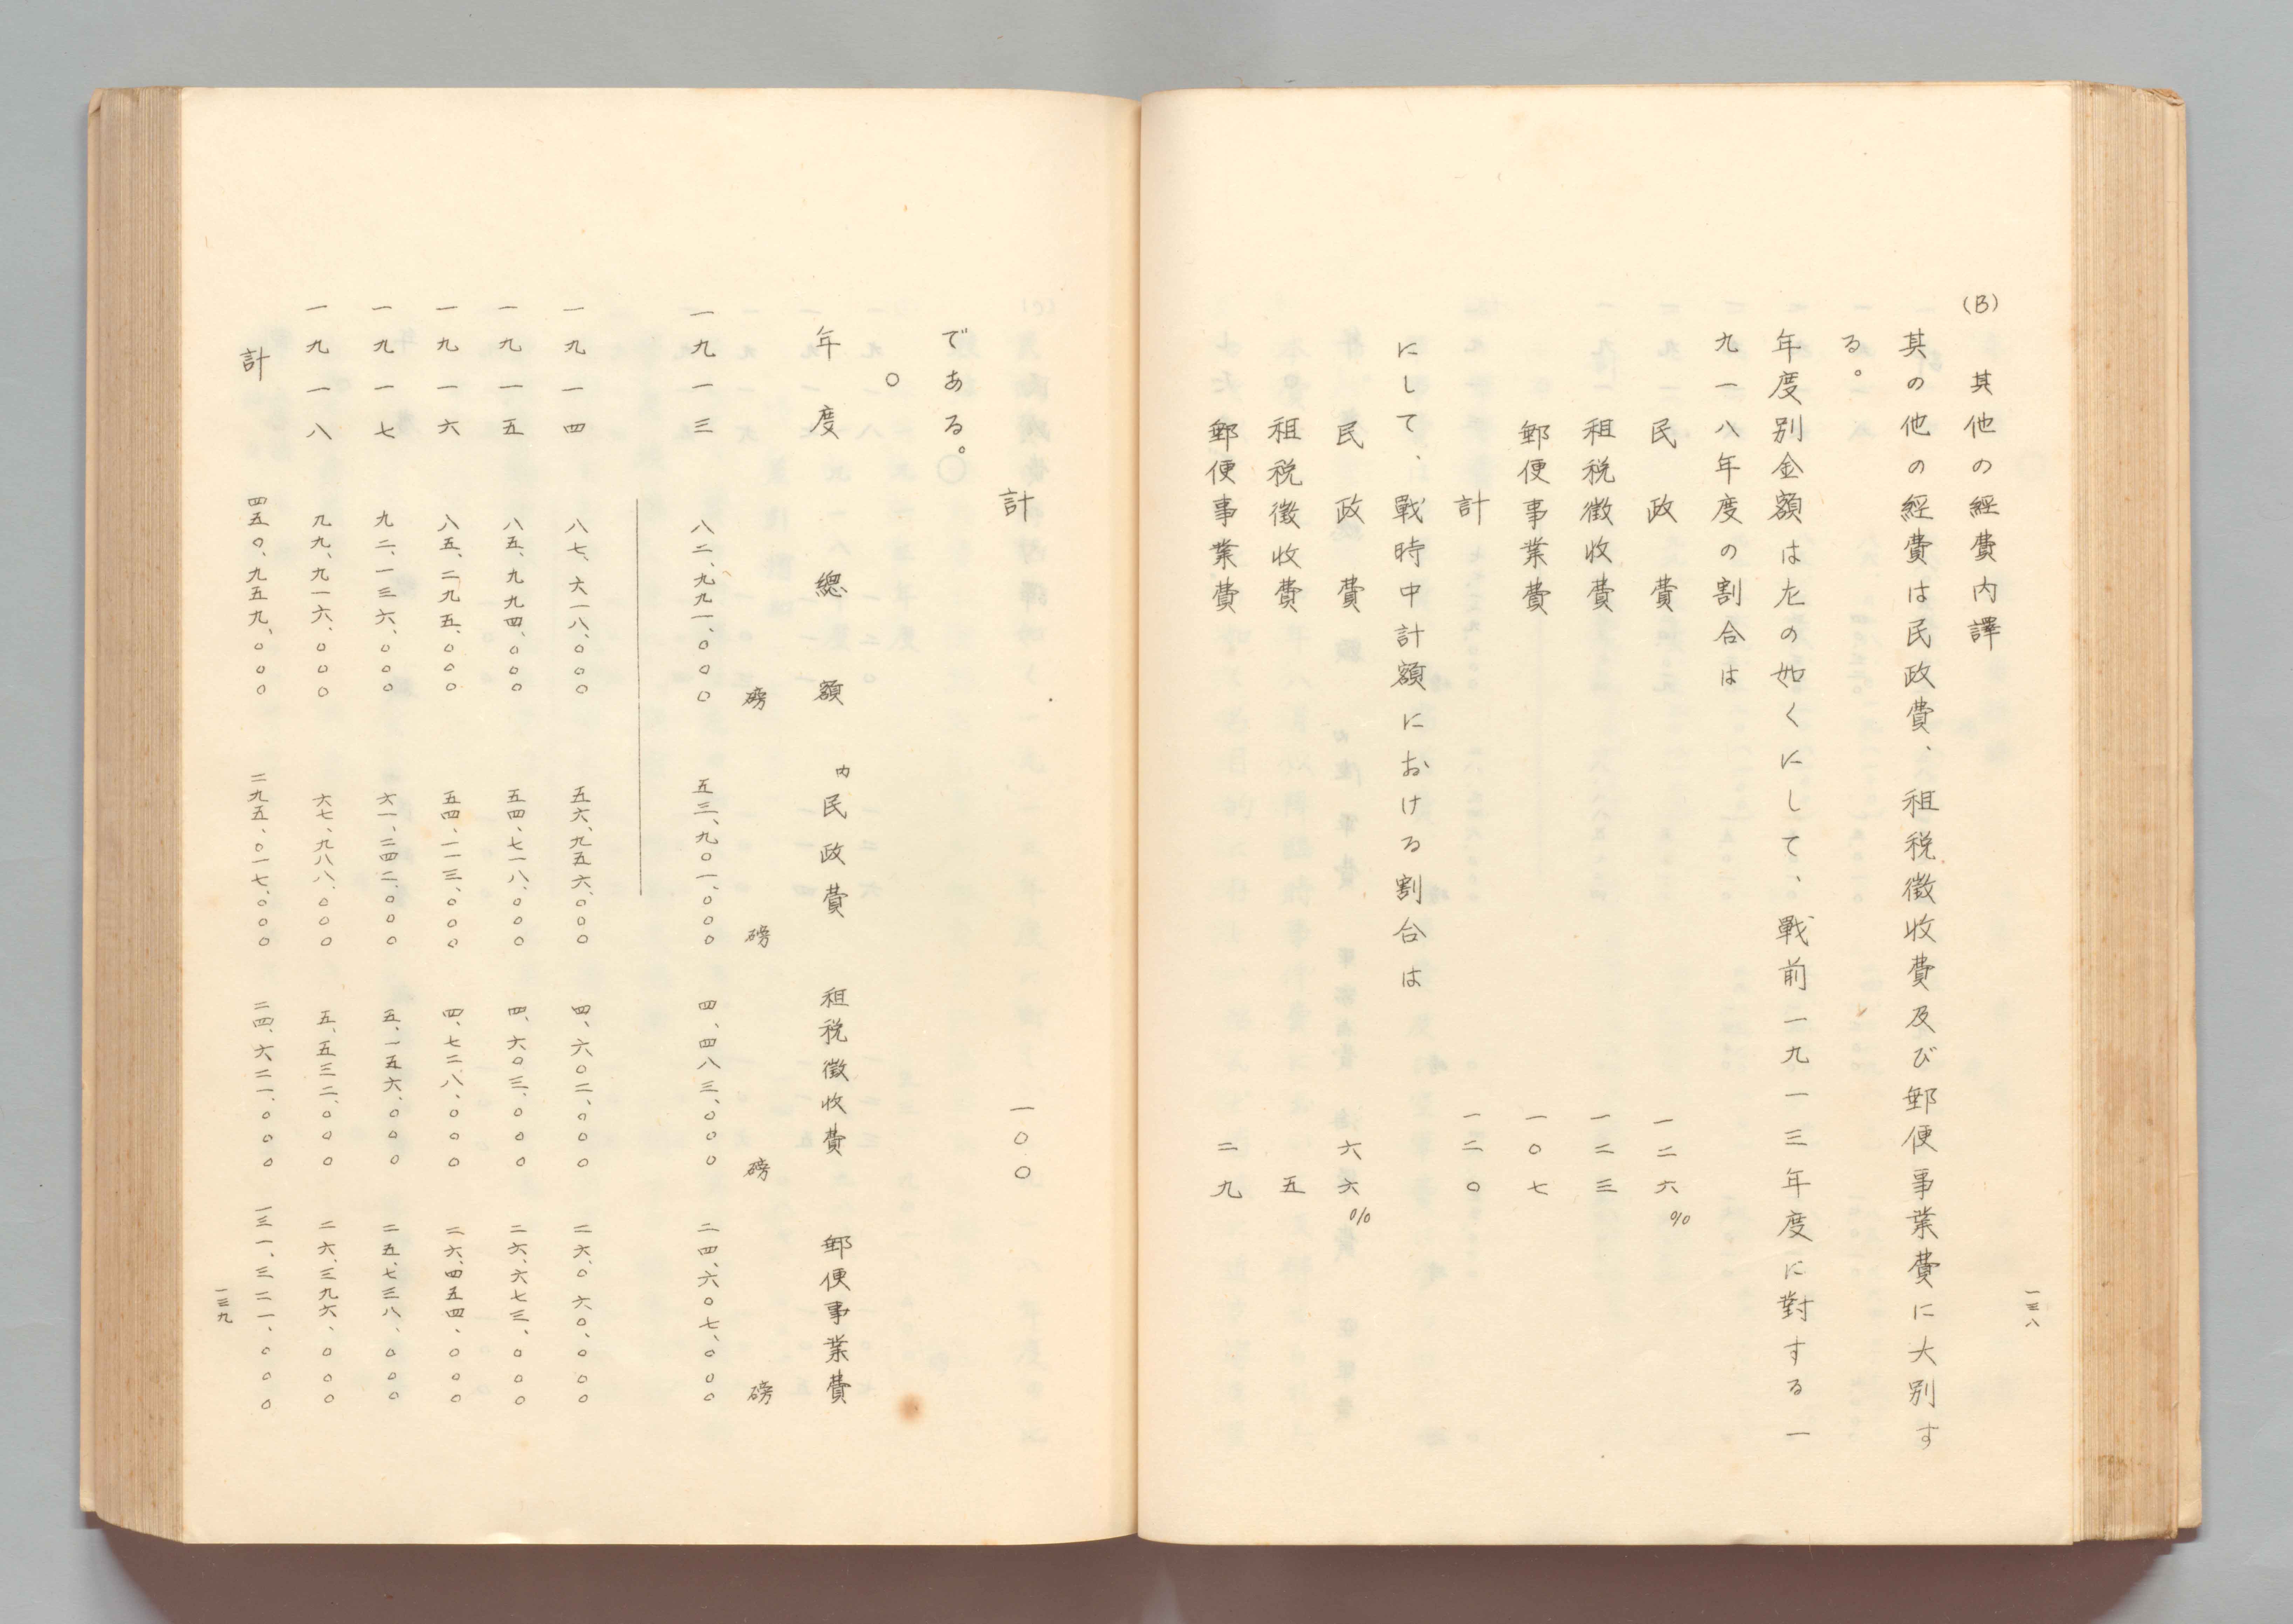 一三八
(B) 其他の經費内譯
其の他の經費は民政費、租税徴收費及び郵便事業費に大別す
る。
年度別金額は左の如くにして、戰前一九一三年度に對する一
九一八年度の割合は
民政費 一二六%
租税徴收費 一二三
郵便事業費 一〇七
計 一二〇
にして、戰時中計額における割合は
民政費 六六%
租税徴收費 五
郵便事業費 二九
計 一〇〇
である。
〇
年度 總額 内民政費 租税徴收費 郵便事業費
磅 磅 磅 磅
一九一三 八二、九九一、〇〇〇 五三、九〇一、〇〇〇 四、四八三、〇〇〇 二四、六〇七、〇〇〇
一九一四 八七、六一八、〇〇〇 五六、九五六、〇〇〇 四、六〇二、〇〇〇 二六、〇六〇、〇〇〇
一九一五 八五、九九四、〇〇〇 五四、七一八、〇〇〇 四、六〇三、〇〇〇 二六、六七三、〇〇〇
一九一六 八五、二九五、〇〇〇 五四、一一三、〇〇〇 四、七二八、〇〇〇 二六、四五四、〇〇〇
一九一七 九二、一三六、〇〇〇 六一、二四二、〇〇〇 五、一五六、〇〇〇 二五、七三八、〇〇〇
一九一八 九九、九一六、〇〇〇 六七、九八八、〇〇〇 五、五三二、〇〇〇 二六、三九六、〇〇〇
計 四五〇、九五九、〇〇〇 二九五、〇一七、〇〇〇 二四、六二一、〇〇〇 一三一、三二一、〇〇〇
一三九